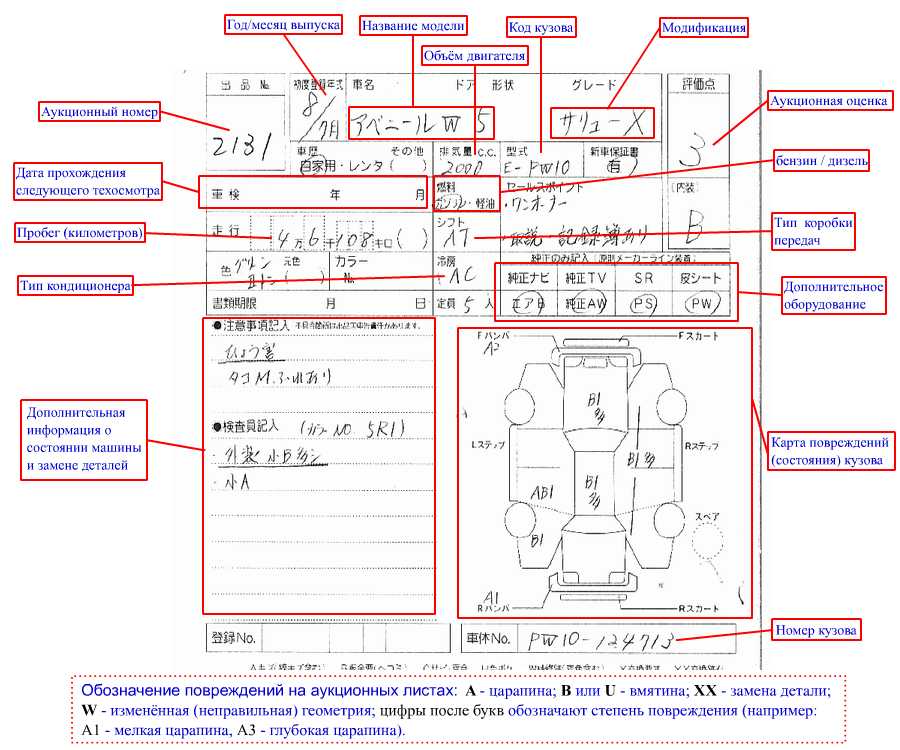 Год/месяц выпуска
Название модели
Код кузова
Модификация
Объём двигателя
Аукционный номер
Аукционная оценка
Дата прохождения
следующего техосмотра
бензин / дизель
Пробег (километров)
Тип коробки
передач
Тип кондиционера
Дополнительное
оборудование
Дополнительная
информация о
состоянии машины
и замене деталей
Карта повреждений
(состояния) кузова
Номер кузова
出品 No.
初度登録年式
車名
ドア 形状
グレード
評価点
2131
8/7月
アベニールW 5
サリュー X
3
車歴 その他
自家用・レンタ( )
排気量 C.C.
2000
型式
E-PW10
新車保証書
(有)
車検 年 月
燃料
ガソリン・軽油
セールスポイント
・ワンオーナー
(内装)
B
走行 4万6千108キロ( )
シフト
AT
・取説・記録簿あり
色 元色
カラー
No.
冷房
AC
純正ナビ 純正TV SR 皮シート
エアB 純正AW PS PW
書類期限 月 日
定員 5 人
●注意事項記入
ひょう害
●検査員記入 (カラーNO 5R1)
・外装 小B多シ
・小A
Fバンパ Fスカート
A2
B1
多
Lステップ Rステップ
B1多
AB1
B1
多
B1
スペア
A1
Rバンパ Rスカート
登録No.
車体No. PW10-124713
Обозначение повреждений на аукционных листах: A - царапина; B или U - вмятина; XX - замена детали;
W - изменённая (неправильна) геометрия; цифры после букв обозначают степень повреждения (например:
A1 - мелкая царапина, A3 - глубокая царапина).